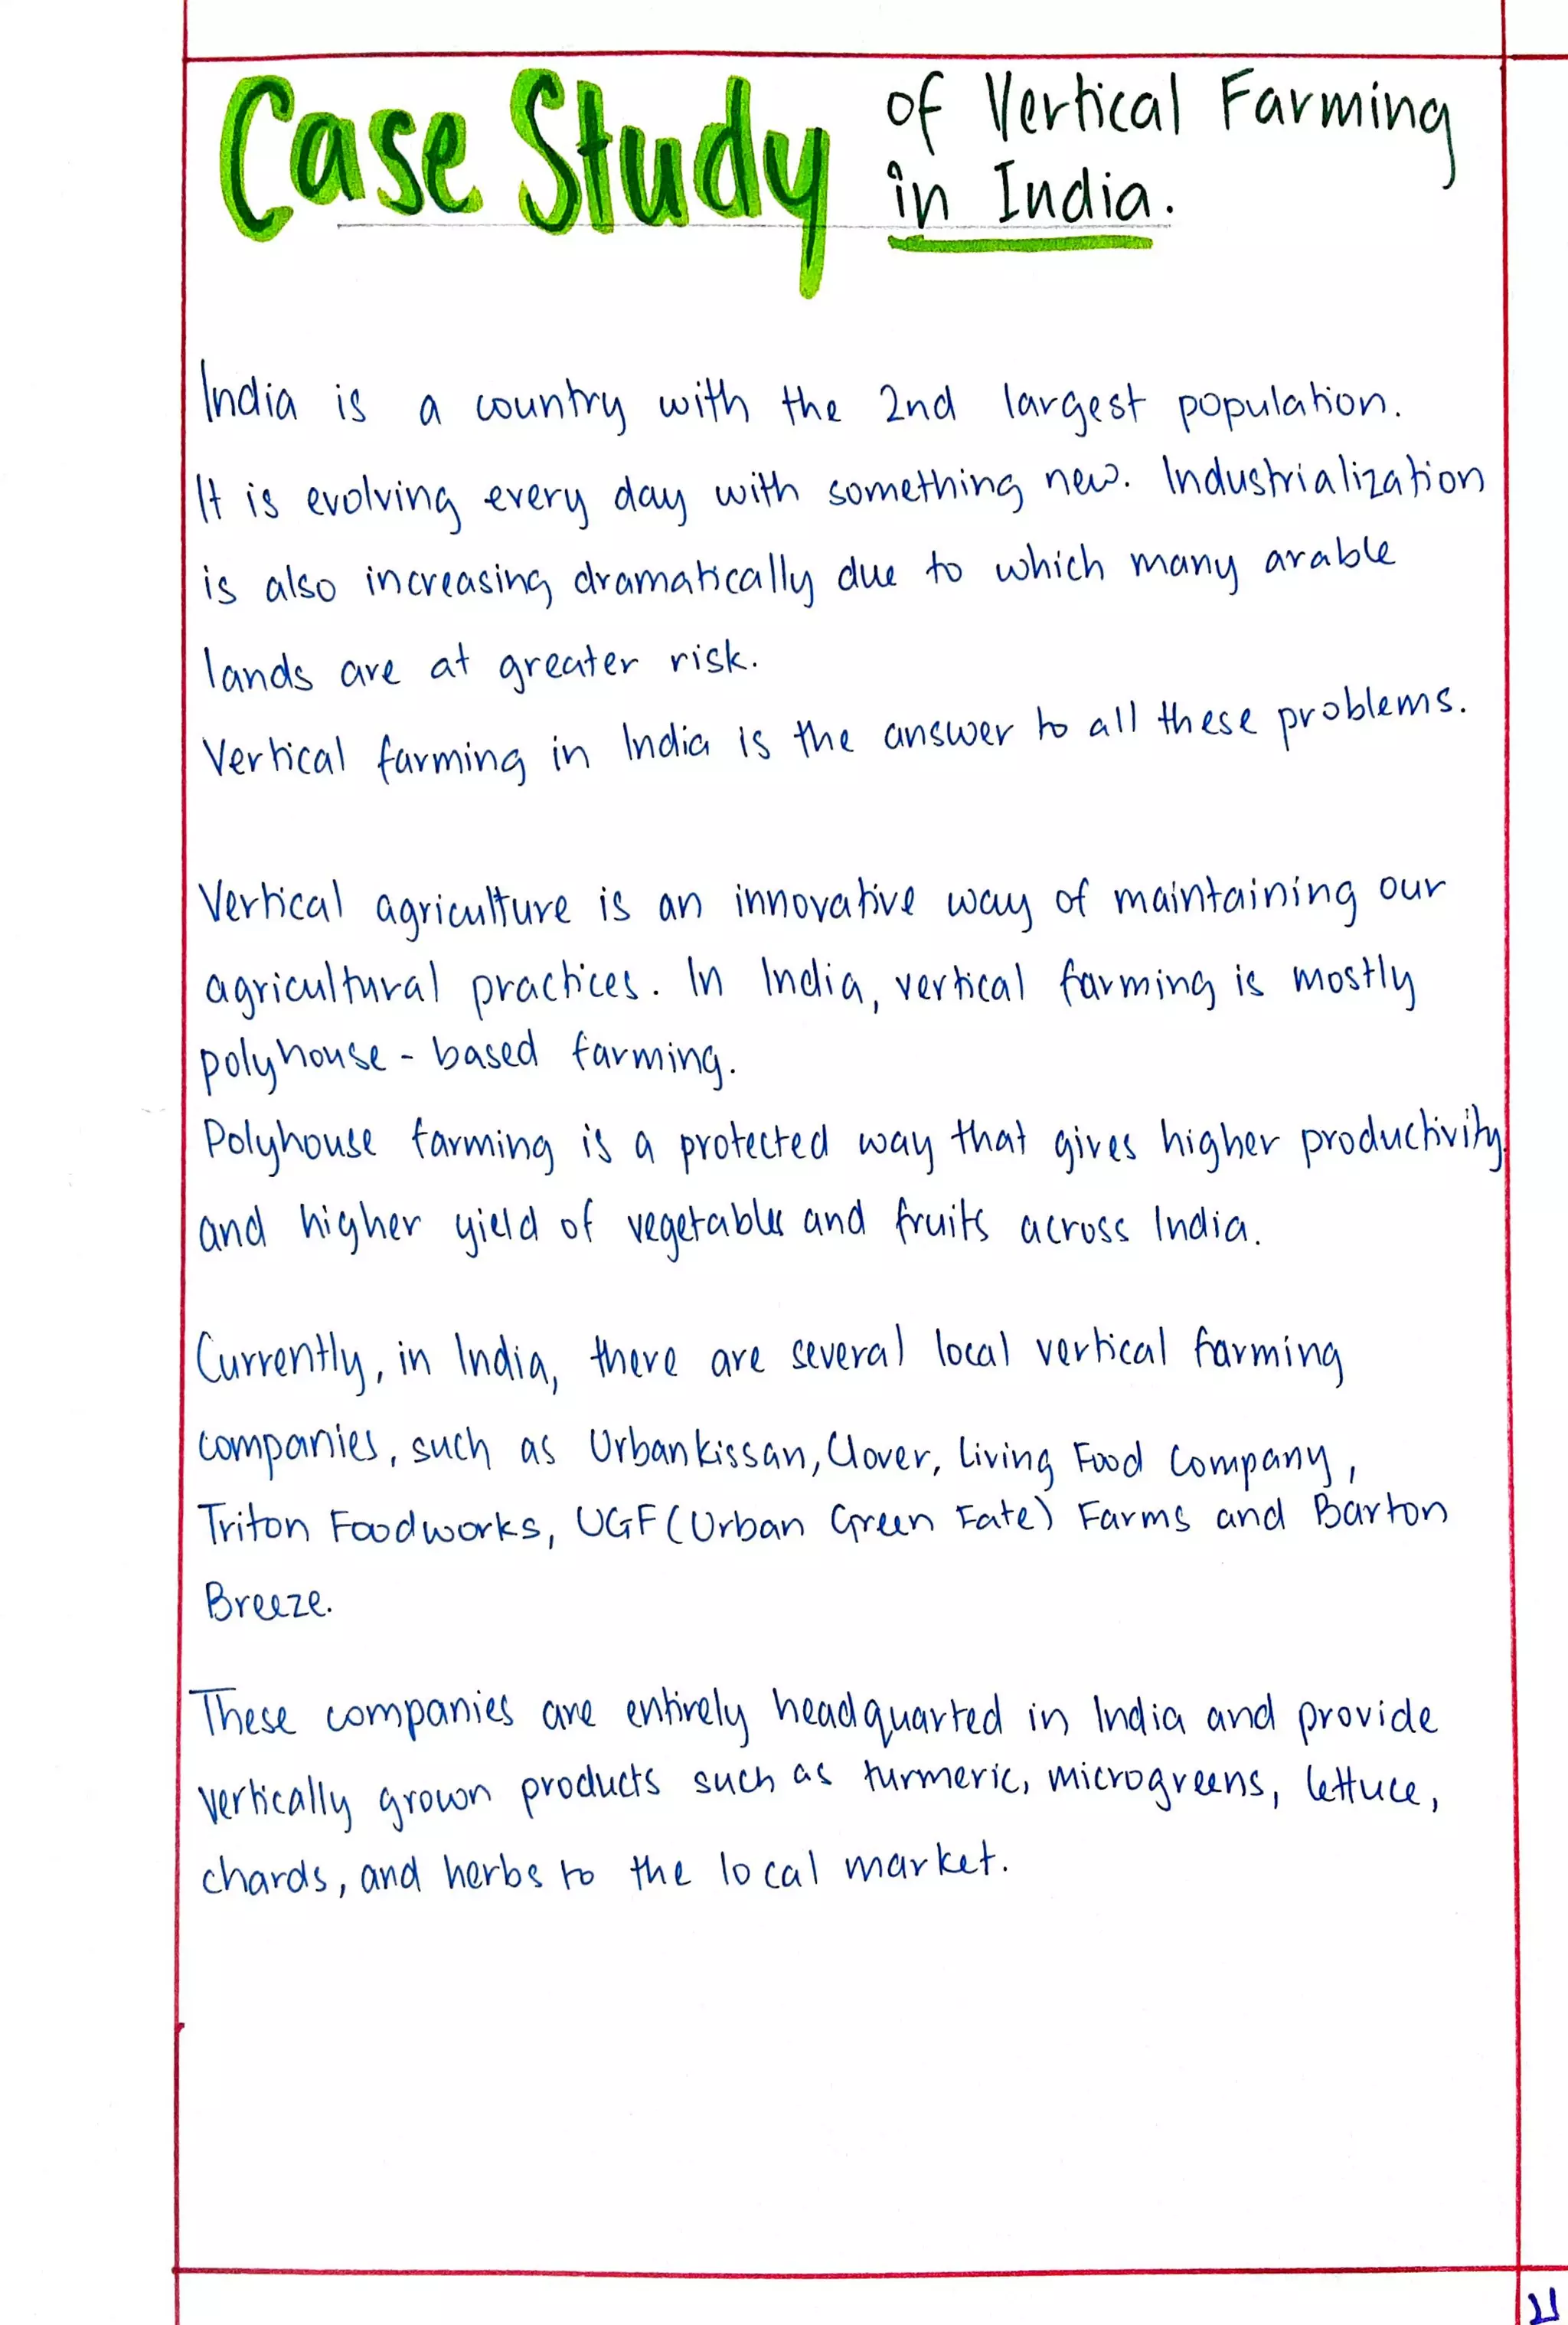 Case Study of Vertical Farming
in India.
India is a country with the 2nd largest population.
It is evolving every day with something new. Industrialization
is also increasing dramatically due to which many arable
lands are at greater risk.
Vertical farming in India is the answer to all these problems.
Vertical agriculture is an innovative way of maintaining our
agricultural practices. In India, vertical farming is mostly
polyhouse-based farming.
Polyhouse farming is a protected way that gives higher productivity
and higher yield of vegetables and fruits across India.
Currently, in India, there are several local vertical farming
companies, such as Urbankissan, Clover, Living Food Company,
Triton Foodworks, UGF (Urban Green Fate) Farms and Barton
Breeze.
These companies are entirely headquarted in India and provide
vertically grown products such as turmeric, microgreens, lettuce,
chards, and herbs to the local market.